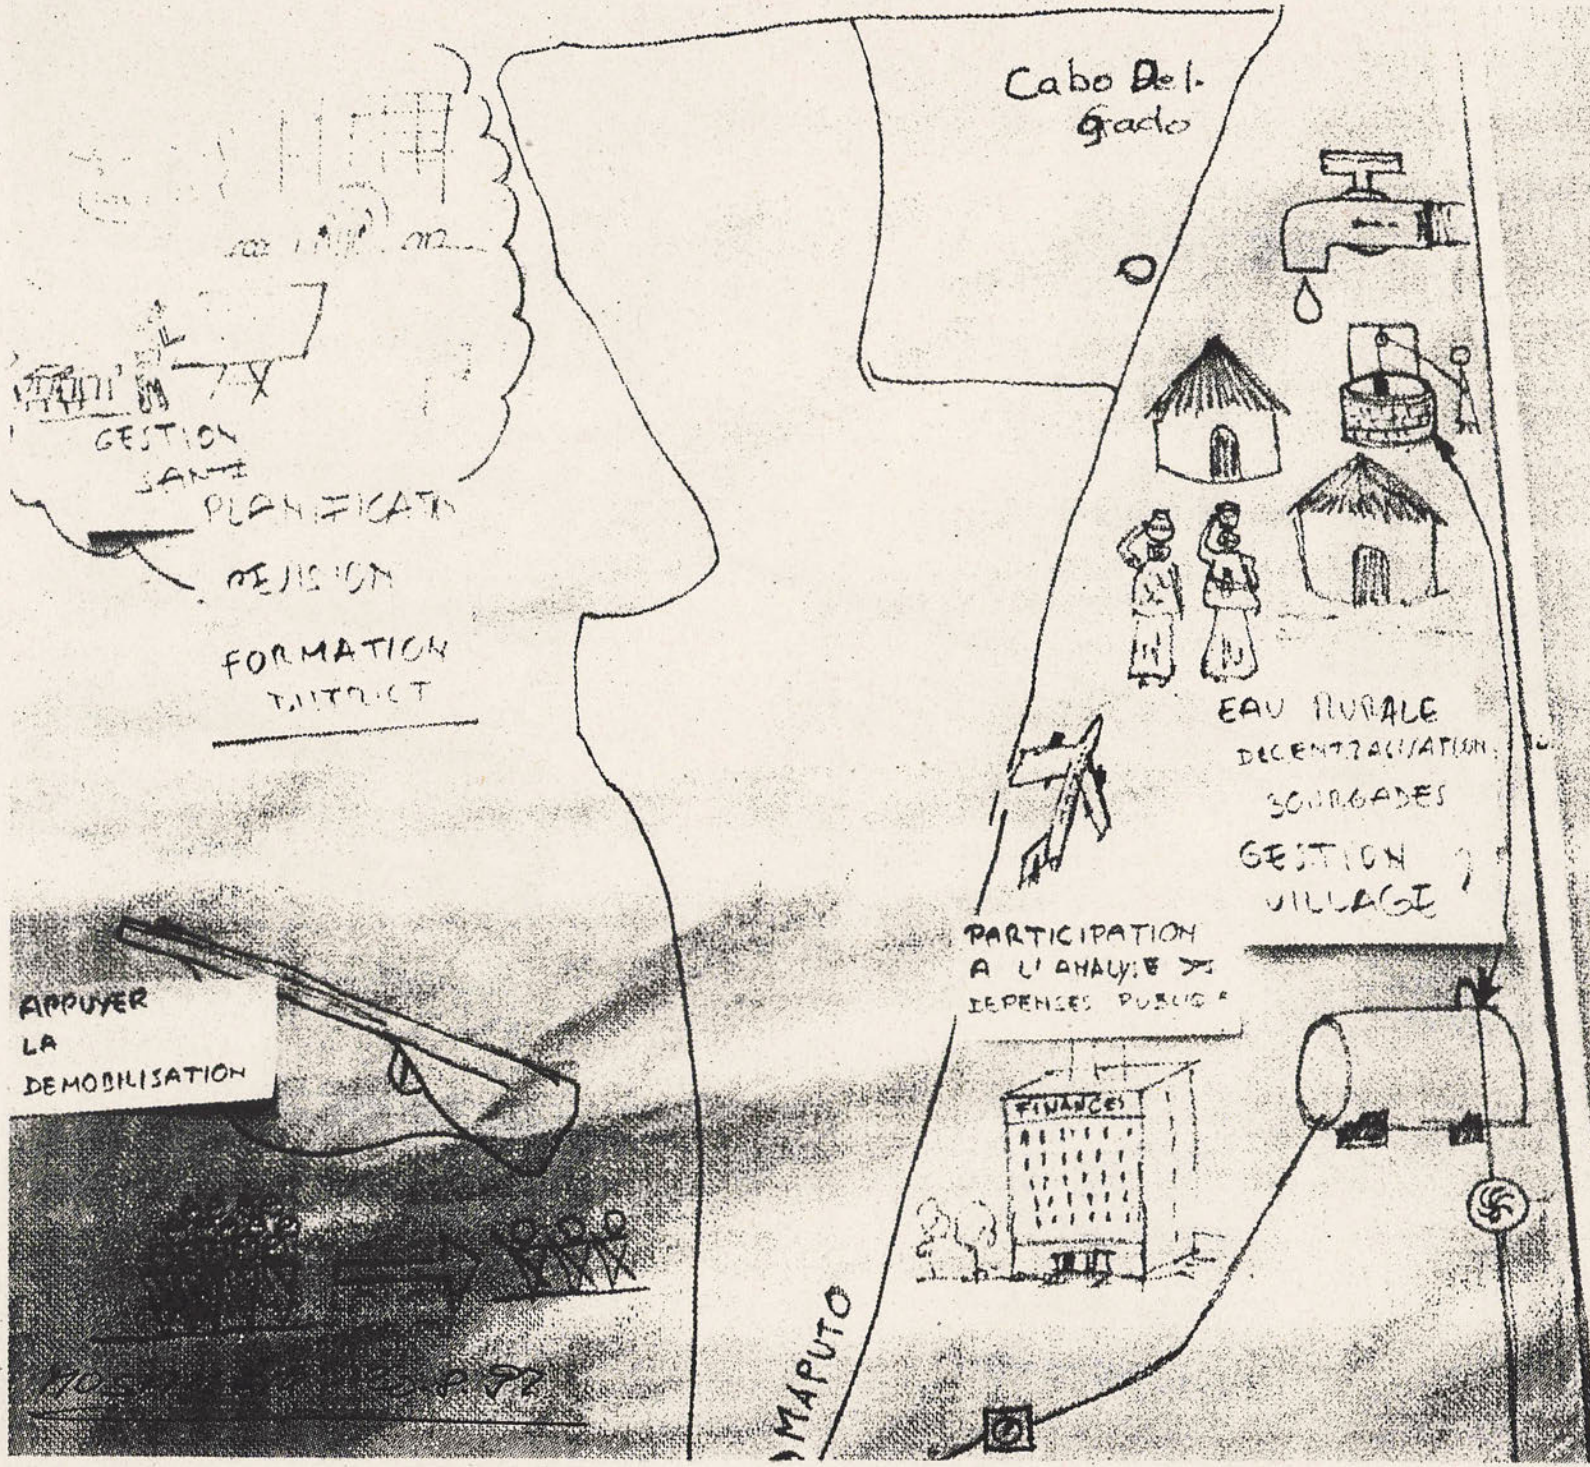 Cabo Del.
grado
GESTION
SANTE
PLANIFICAT
FORMATION
DISTRICT
EAU RURALE
DECENTRALISATION
BOURGADES
GESTION
VILLAGE
PARTICIPATION
A L'ANALYSE
DEPENSES PUBLIC
APPUYER
LA
DEMOBILISATION
FINANCES
MAPUTO